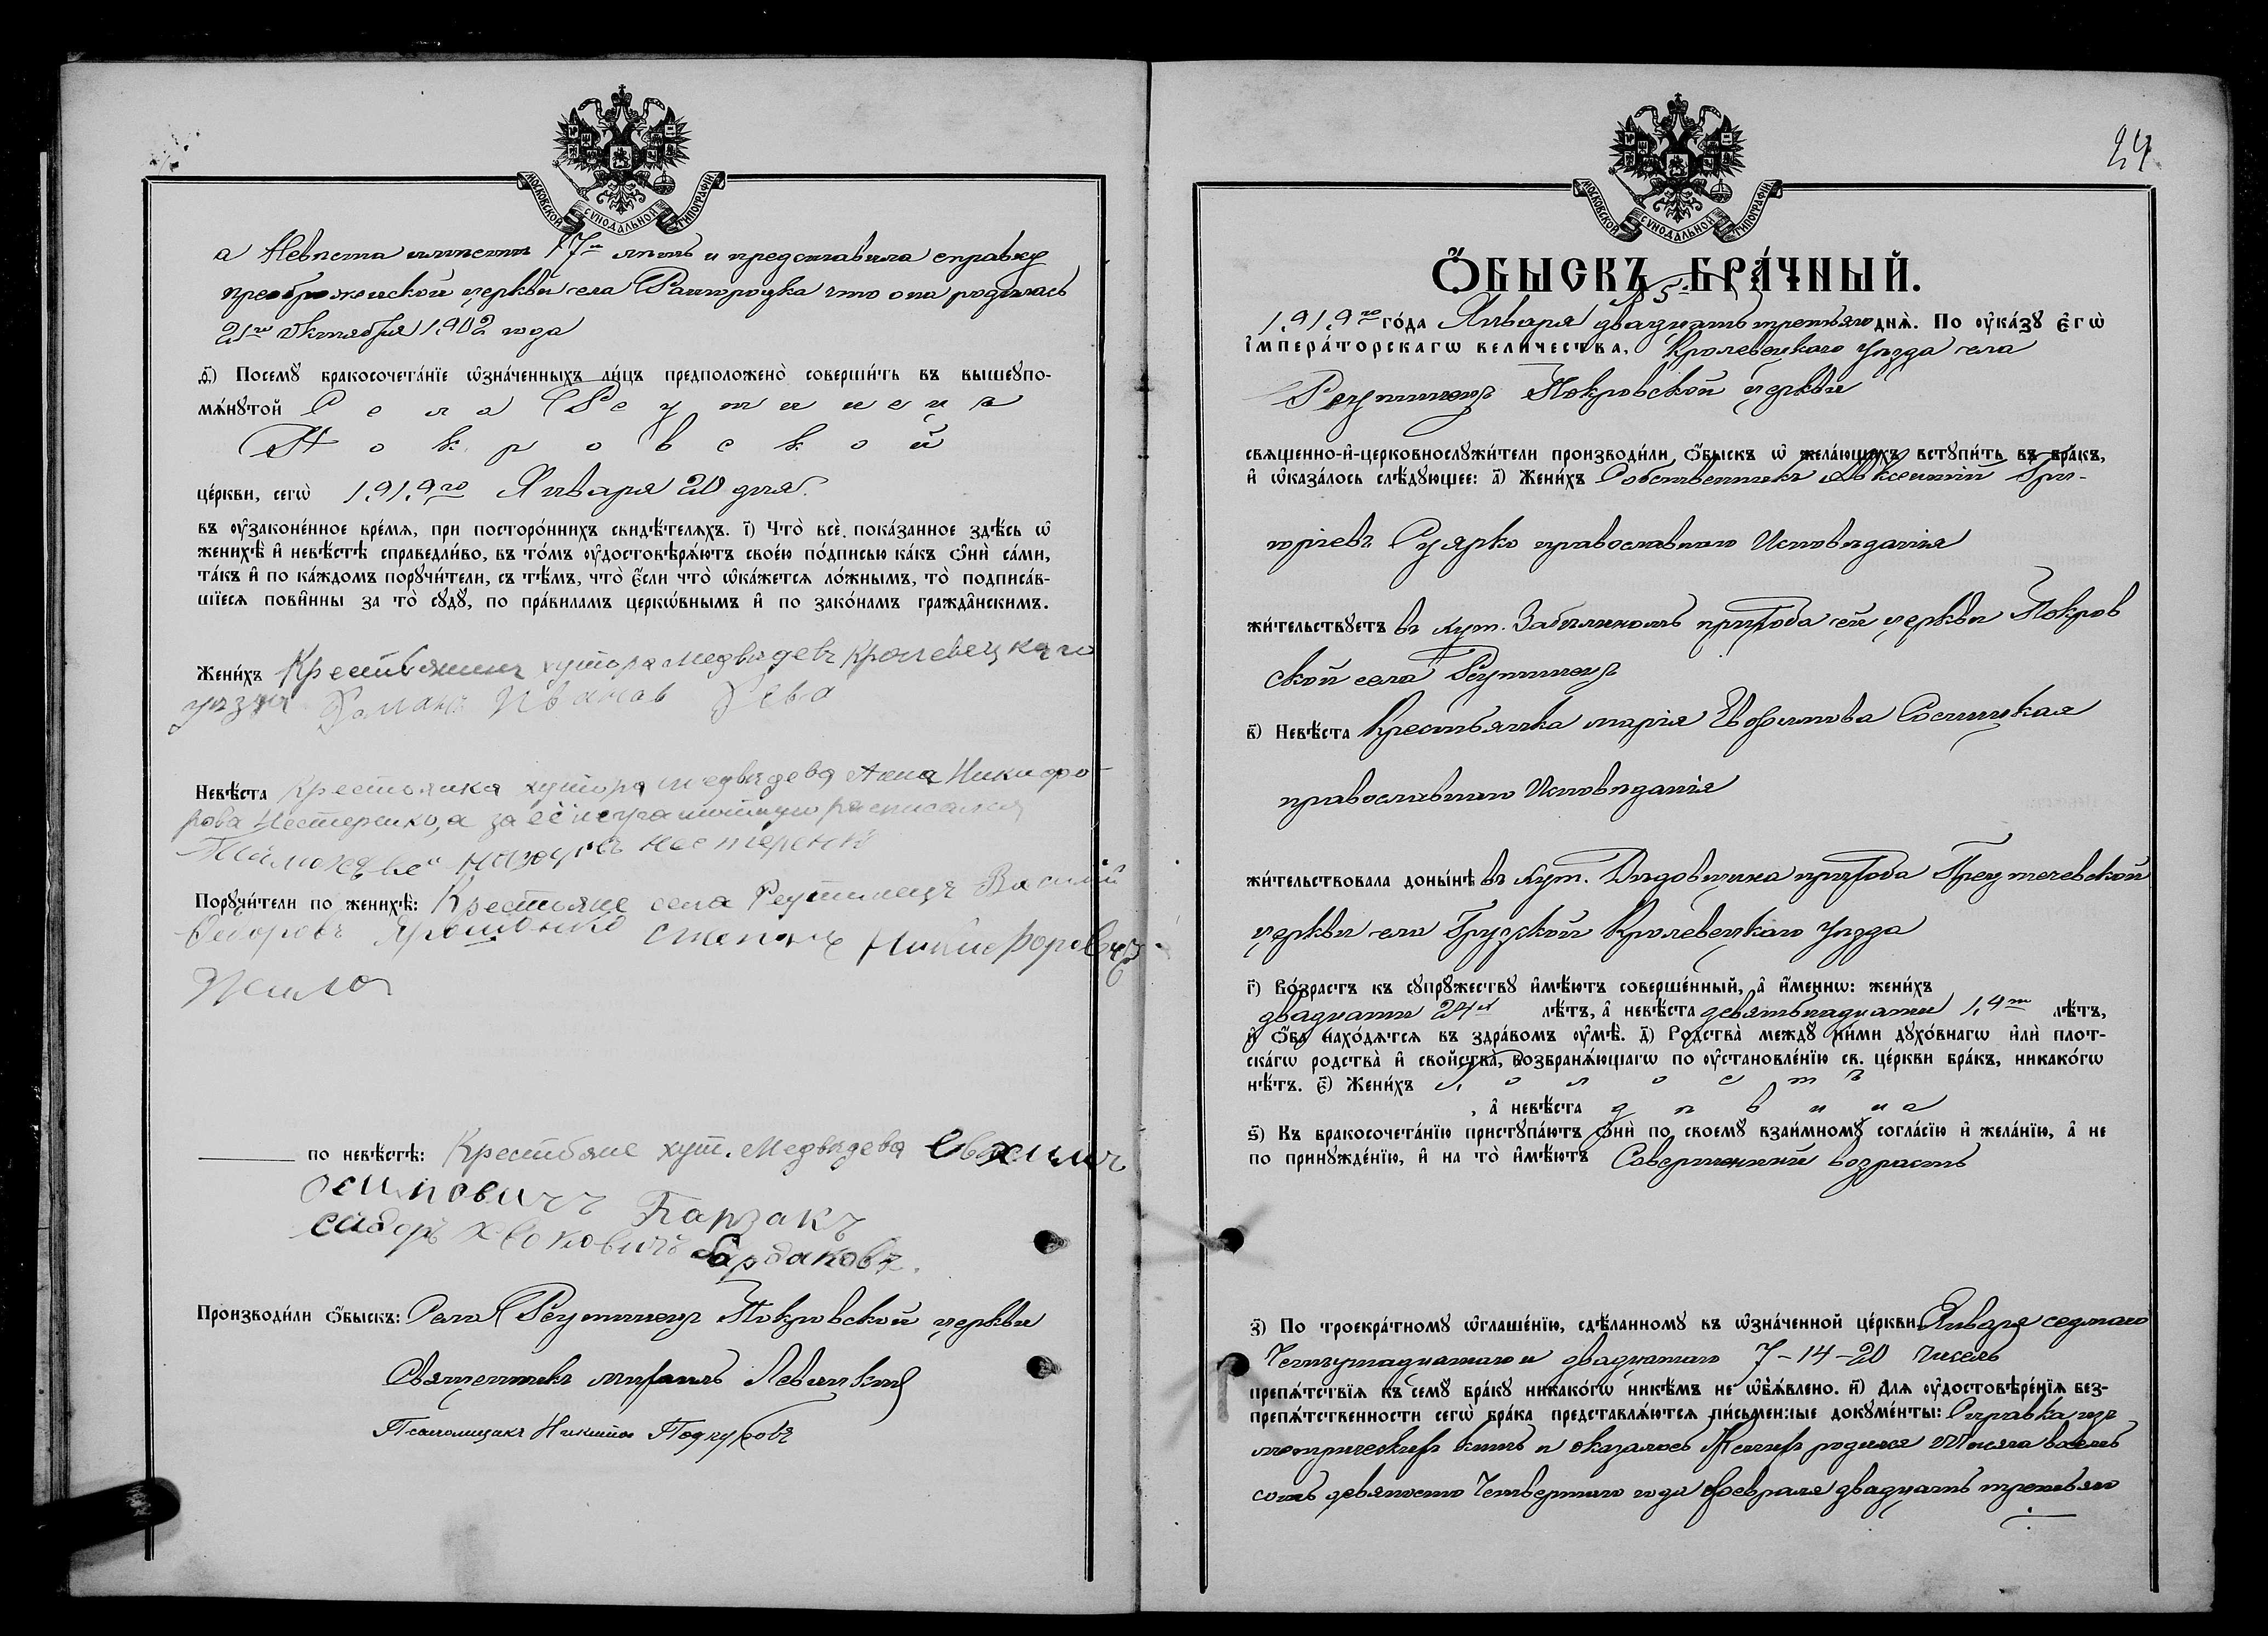 МОСКОВСКОЙ СѴНОДАЛЬНОЙ ТИПОГРАФІИ
а Невѣста имѣетъ 17ть лѣтъ и представила справку
преображенской церкви села Рашородка что она родилась
21го Октября 1902 года
д҃) Посемꙋ̀ бракосочета́нїе ѡ҆зна́ченныхъ ли́цъ предположено̀ соверши́ть въ вышеꙋпо-
мѧ́нꙋтой Села Реутинецъ
Покровской
це́ркви, сегѡ̀ 1919го Января 20 дня
въ ᲂу҆законе́нное вре́мѧ, при посторо́ннихъ свидѣ́телѧхъ. і҃) Что̀ всѐ пока́занное здѣ́сь ѡ҆
женихѣ̀ и҆ невѣ́стѣ справедли́во, въ то́мъ ᲂу҆достовѣрѧ́ютъ свое́ю по́дписью ка́къ ѻ҆нѝ са́ми,
та́къ и҆ по ка́ждомъ порꙋчи́тели, съ тѣ́мъ, что̀ є҆́сли что̀ ѡ҆ка́жетсѧ ло́жнымъ, то̀ подписа́в-
шїесѧ пови́нны за то̀ сꙋдꙋ̀, по пра́виламъ церкѡ́внымъ и҆ по зако́намъ гражда̑нскимъ.
Жени́хъ Крестьянинъ хутора Медвѣдевъ Кролевецкаго
уѣзда Романъ Ивановъ Рева
Невѣ́ста Крестьянка хутора Медвѣдева Анна Никифо-
рова Нестеренко, а за её неграмотную росписался
Нестеренко
Порꙋчи́тели по женихѣ̀: Крестьяне села Реутинецъ Василий
Федоровъ Ярошенко Степанъ Никифоровичъ
по невѣ́стѣ: Крестьяне хут. Медвѣдева Евхимъ
Осиповичъ Барзакъ
Сидоръ
Производи́ли ѻ҆́быскъ: Села Реутинецъ Покровской церкви
Священникъ Михаилъ Левицкій
Псаломщикъ Никита
МОСКОВСКОЙ СѴНОДАЛЬНОЙ ТИПОГРАФІИ
24
Ѻ҆́БЫСКЪ БРА́ЧНЫЙ.
№ 5
1919го го́да Января двадцать третьяго днѧ̀. По ᲂу҆ка́зꙋ є҆гѡ̀
І҆мпера́торскагѡ вели́чества, Кролевецкаго уѣзда села
Реутинецъ Покровской церкви
свѧщенно-и҆-церковнослꙋжи́тели производи́ли ѻ҆́быскъ ѡ҆ жела́ющихъ встꙋпи́ть въ бра́къ,
и҆ ѡ҆каза́лось слѣ́дꙋющее: а҃) Жени́хъ Собственникъ Авксентій Гри-
горіевъ Сулрко православнаго Исповѣданія
жи́тельствꙋетъ въ хут. Забѣлиномъ прихода сей церкви Покров
ской села Реутинецъ
в҃) Невѣ́ста Крестьянка Марія Евфимова Сосницкая
православнаго Исповѣданія
жи́тельствовала доны́нѣ въ хут. Дѣдовщина прихода Предтечевской
церкви села Грузской Кролевецкаго уѣзда
г҃) Во́зрастъ къ сꙋпрꙋжествꙋ̀ и҆мѣ́ютъ соверше́нный, а҆ и҆́меннѡ: жени́хъ
двадцати 24х лѣ́тъ, а҆ невѣ́ста девятьнадцати 19ти лѣ́тъ,
и҆ ѻ҆́ба нахо́дѧтсѧ въ здра́вомъ ᲂу҆мѣ̀. д҃) Родства̀ междꙋ̀ ни́ми дꙋхо́внагѡ и҆лѝ плот-
ска́гѡ родства̀ и҆ сво́йства̀, возбранѧ́ющагѡ по ᲂу҆становле́нїю св. це́ркви бра́къ, никако́гѡ
нѣ́тъ. є҃) Жени́хъ холостъ
, а҆ невѣ́ста дѣвица
ѕ҃) Къ бракосочета́нїю пристꙋпа́ютъ ѻ҆нѝ по своемꙋ̀ взаи́мномꙋ согла́сїю и҆ жела́нїю, а҆ не
по принꙋжде́нїю, и҆ на то̀ и҆мѣ́ютъ Совершенный возрастъ
з҃) По троекра́тномꙋ ѡ҆глаше́нїю, сдѣ́ланномꙋ въ ѡ҆зна́ченной це́ркви Января седмаго
Четырнадцатаго и двадцатаго 7-14-20 Числъ
препѧ́тствїѧ къ семꙋ̀ бра́кꙋ никако́гѡ никѣ́мъ не ѡ҆бъѧ́влено. и҃) Длѧ ᲂу҆достовѣре́нїѧ без-
препѧ́тственности сегѡ̀ бра́ка представлѧ́ютсѧ пи́сьменные докꙋме́нты: Справка изъ
метрическихъ книгъ и оказалось Женихъ родился Тысяча восемь
сотъ девяносто Четвертаго года февраля двадцать третьяго